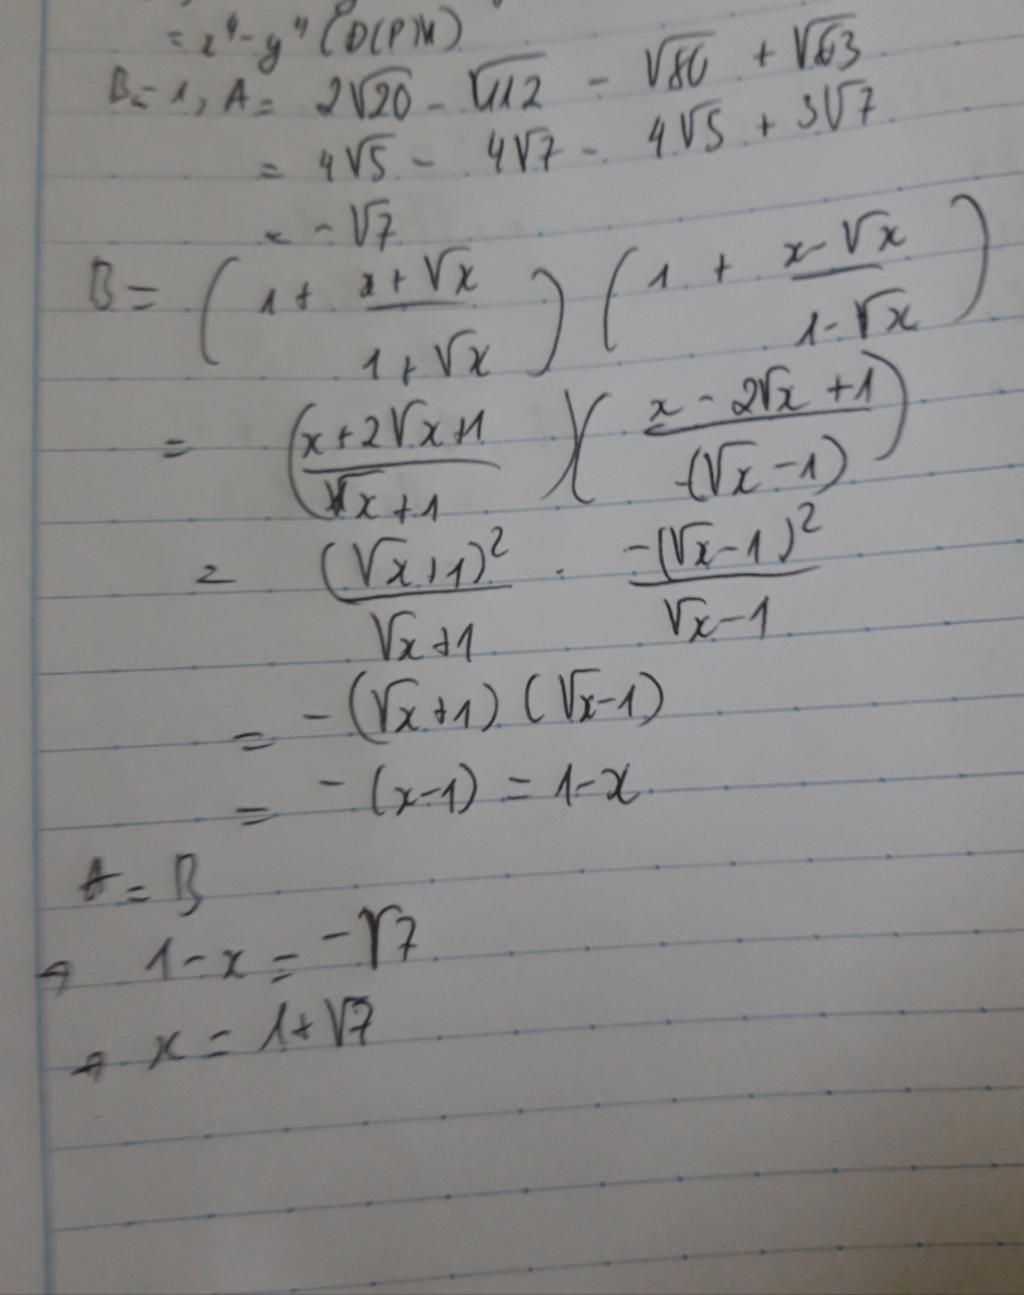 = x⁴ - y⁴ (DCPM)
B = 1, A = 2√20 - √112 - √80 + √63
= 4√5 - 4√7 - 4√5 + 3√7
= -√7
B = (1 + (x + √x)/(1 + √x)) (1 + (x - √x)/(1 - √x))
= ((x + 2√x + 1)/(√x + 1)) ((x - 2√x + 1)/(-(√x - 1)))
= (√x + 1)²/(√x + 1) · -(√x - 1)²/(√x - 1)
= -(√x + 1) (√x - 1)
= -(x - 1) = 1 - x
A = B
→ 1 - x = -√7
→ x = 1 + √7